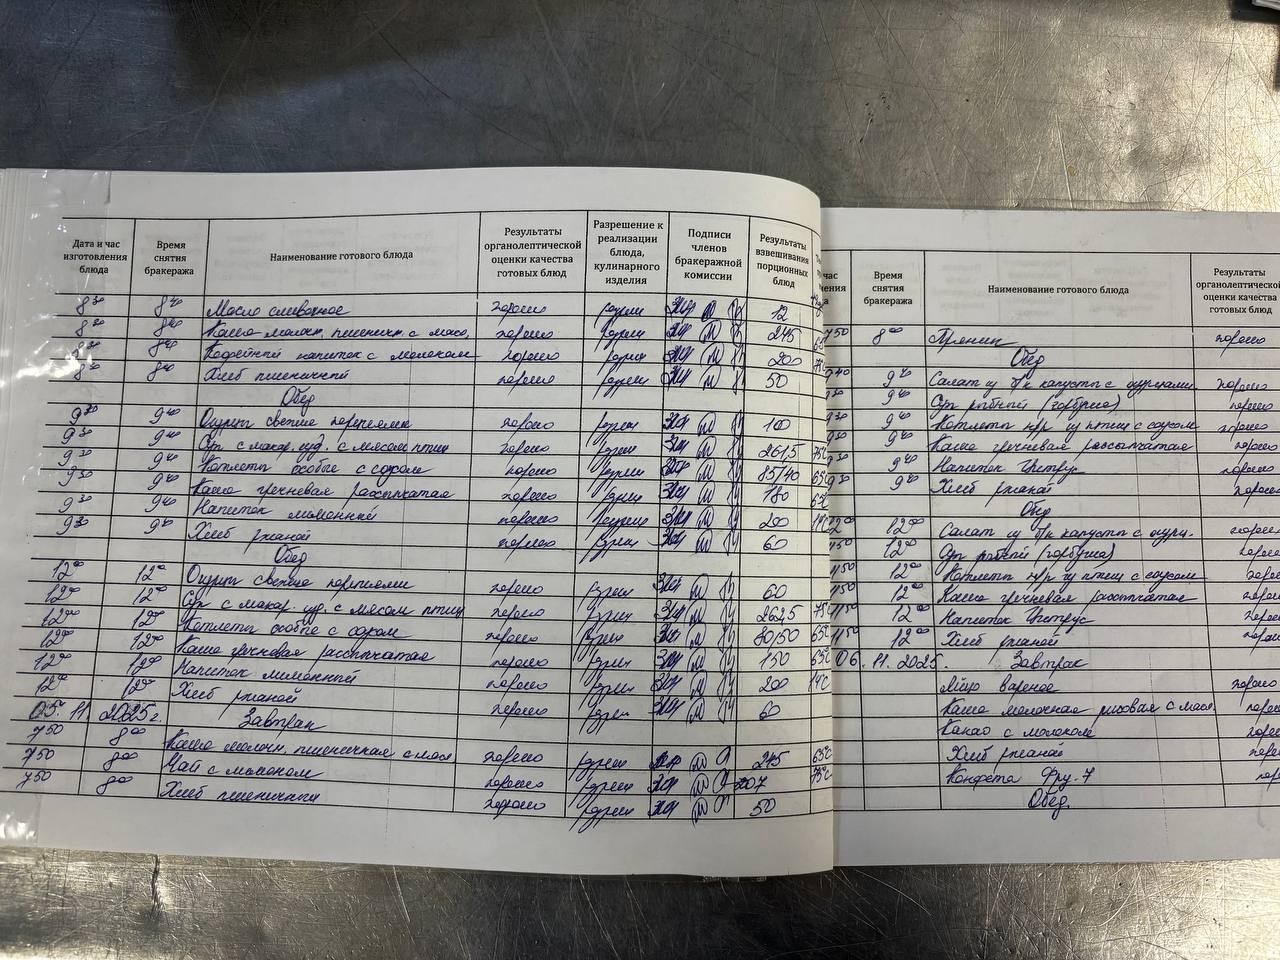 Дата и час изготовления блюда | Время снятия бракеража | Наименование готового блюда | Результаты органолептической оценки качества готовых блюд | Разрешение к реализации блюда, кулинарного изделия | Подписи членов бракеражной комиссии | Результаты взвешивания порционных блюд
8 30 8 40 Масло сливочное хорошо 12
8 30 8 40 Каша молочн. пшеничн. с масл. хорошо 245
8 30 8 40 Кофейный напиток с молоком хорошо 200
8 30 8 40 Хлеб пшеничный хорошо 50
Обед
9 30 9 40 Огурцы свежие порциями хорошо 100
9 30 9 40 Суп с макар. изд. с мясом птиц хорошо 261,5 75°C
9 30 9 40 Котлеты особые с соусом хорошо 85/40 65°C
9 30 9 40 Каша гречневая рассыпчатая хорошо 180 65°C
9 30 9 40 Напиток лимонный хорошо 200 14°C
9 30 9 40 Хлеб ржаной хорошо 60
Обед
12 00 12 00 Огурцы свежие порциями хорошо 60
12 00 12 00 Суп с макар. изд. с мясом птиц хорошо 262,5 75°C
12 00 12 00 Котлеты особые с соусом хорошо 80/50 65°C
12 00 12 00 Каша гречневая рассыпчатая хорошо 150 65°C
12 00 12 00 Напиток лимонный хорошо 200 14°C
12 00 12 00 Хлеб ржаной хорошо 60
05. 11. 2025г Завтрак
7 50 8 00 Каша молочн. пшеничная с масл хорошо 245 65°C
7 50 8 00 Чай с лимоном хорошо 207 75°C
7 50 8 00 Хлеб пшеничный хорошо 50
Время снятия бракеража | Наименование готового блюда | Результаты органолептической оценки качества готовых блюд
7 50 8 00 Пряник хорошо
Обед
9 40 Салат из б/к капусты с огурцами хорошо
9 40 Суп рыбный (горбуша) хорошо
9 40 Котлеты п/ф из птиц с соусом хорошо
9 40 Каша гречневая рассыпчатая хорошо
9 40 Напиток Цитрус хорошо
9 40 Хлеб ржаной хорошо
Обед
12 00 Салат из б/к капусты с огурц. хорошо
12 00 Суп рыбный (горбуша) хорошо
12 00 Котлеты п/ф из птиц с соусом хорошо
12 00 Каша гречневая рассыпчатая хорошо
12 00 Напиток Цитрус хорошо
12 00 Хлеб ржаной хорошо
06. 11. 2025. Завтрак
Яйцо вареное хорошо
Каша молочная рисовая с масл
Какао с молоком
Хлеб ржаной
Конфета Фру-7
Обед